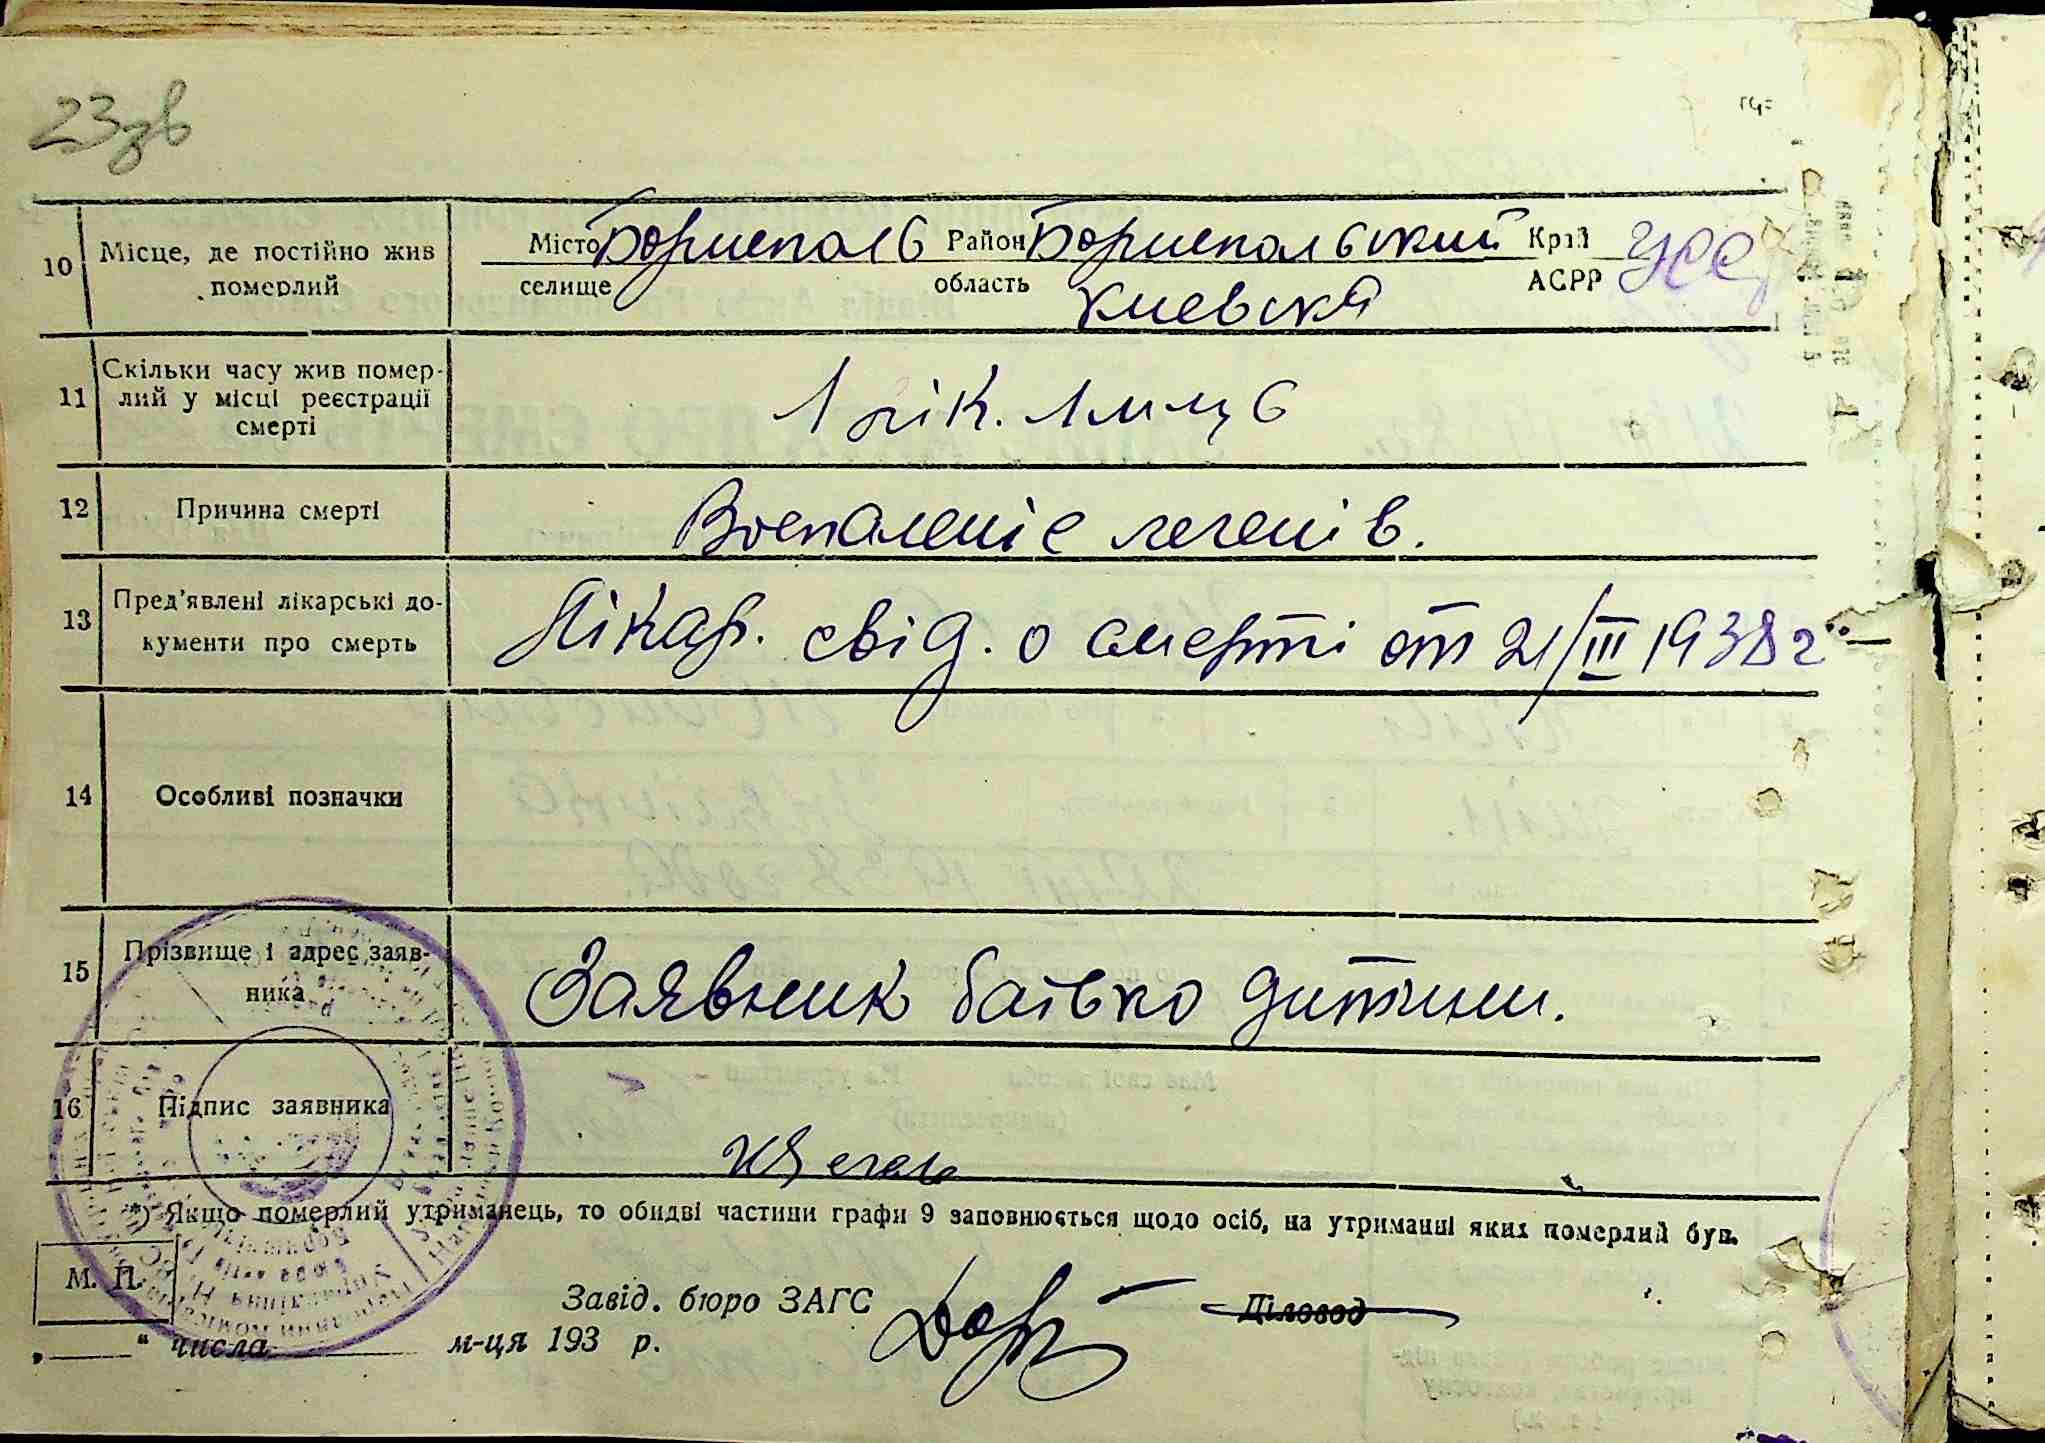 23зв
10 Місце, де постійно жив померлий Місто Бориспаль Район Бориспальський Край УСС
селище область Киевска АСРР
11 Скільки часу жив померлий у місці реєстрації смерті 1 рік. 1 м-ць
12 Причина смерті Воспаленіе легенів.
13 Пред'явлені лікарські документи про смерть Лікар. свід. о смерті от 21/III 1938 г
14 Особливі позначки
15 Прізвище і адрес заявника Заявник батько дитини.
16 Підпис заявника
*) Якщо померлий утриманець, то обидві частини графи 9 заповнюється щодо осіб, на утриманні яких померлий був.
М. П.
Завід. бюро ЗАГС Діловод
„ “ числа м-ця 193 р.